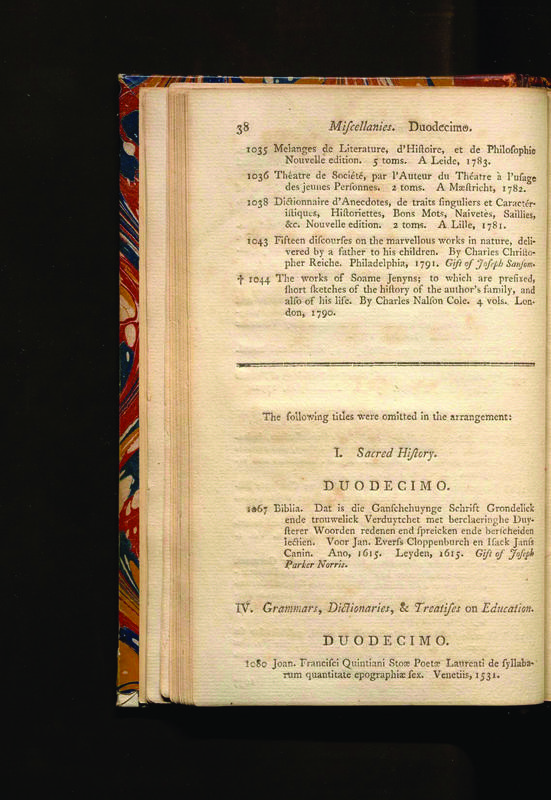 38 Miſcellanies. Duodecimo.
1035 Melanges de Literature, d'Hiſtoire, et de Philoſophie
Nouvelle edition. 5 toms. A Leide, 1783.
1036 Théatre de Société, par l'Auteur du Théatre à l'uſage
des jeunes Perſonnes. 2 toms. A Mæſtricht, 1782.
1038 Dictionnaire d'Anecdotes, de traits ſinguliers et Caractér-
iſtiques, Hiſtoriettes, Bons Mots, Naivetes, Saillies,
&c. Nouvelle edition. 2 toms. A Lille, 1781.
1043 Fifteen diſcourſes on the marvellous works in nature, deli-
vered by a father to his children. By Charles Chriſto-
pher Reiche. Philadelphia, 1791. Gift of Joſeph Sanſom.
† 1044 The works of Soame Jenyns; to which are prefixed,
ſhort ſketches of the hiſtory of the author's family, and
alſo of his life. By Charles Nalſon Cole. 4 vols. Lon-
don, 1790.
The following titles were omitted in the arrangement:
I. Sacred Hiſtory.
DUODECIMO.
1067 Biblia. Dat is die Ganſchehuynge Schrift Grondelick
ende trouwelick Verduytchet met berclaeringhe Duy-
ſterer Woorden redenen end ſpreicken ende berſcheiden
lectien. Voor Jan. Everſs Cloppenburch en Iſack Janſs
Canin. Ano, 1615. Leyden, 1615. Gift of Joſeph
Parker Norris.
IV. Grammars, Dictionaries, & Treatiſes on Education.
DUODECIMO.
1080 Joan. Franciſci Quintiani Stoæ Poetæ Laureati de ſyllaba-
rum quantitate epographiæ ſex. Venetiis, 1531.